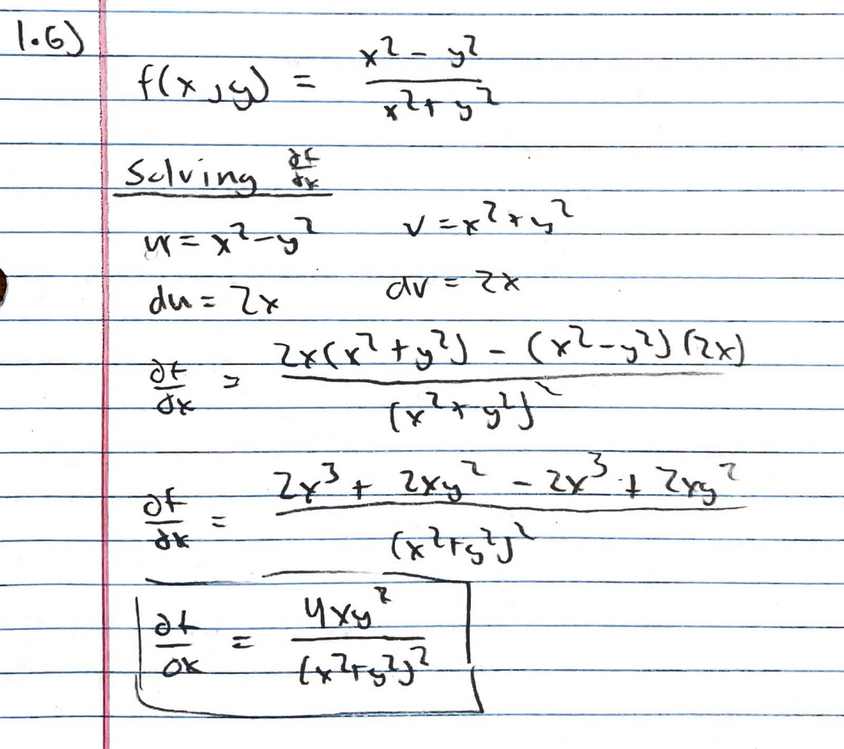 1.6)
f(x,y) = (x² - y²)/(x² + y²)
Solving ∂f/∂x
u = x² - y² v = x² + y²
du = 2x dv = 2x
∂f/∂x = (2x(x² + y²) - (x² - y²)(2x))/(x² + y²)²
∂f/∂x = (2x³ + 2xy² - 2x³ + 2xy²)/(x² + y²)²
∂f/∂x = 4xy²/(x² + y²)²